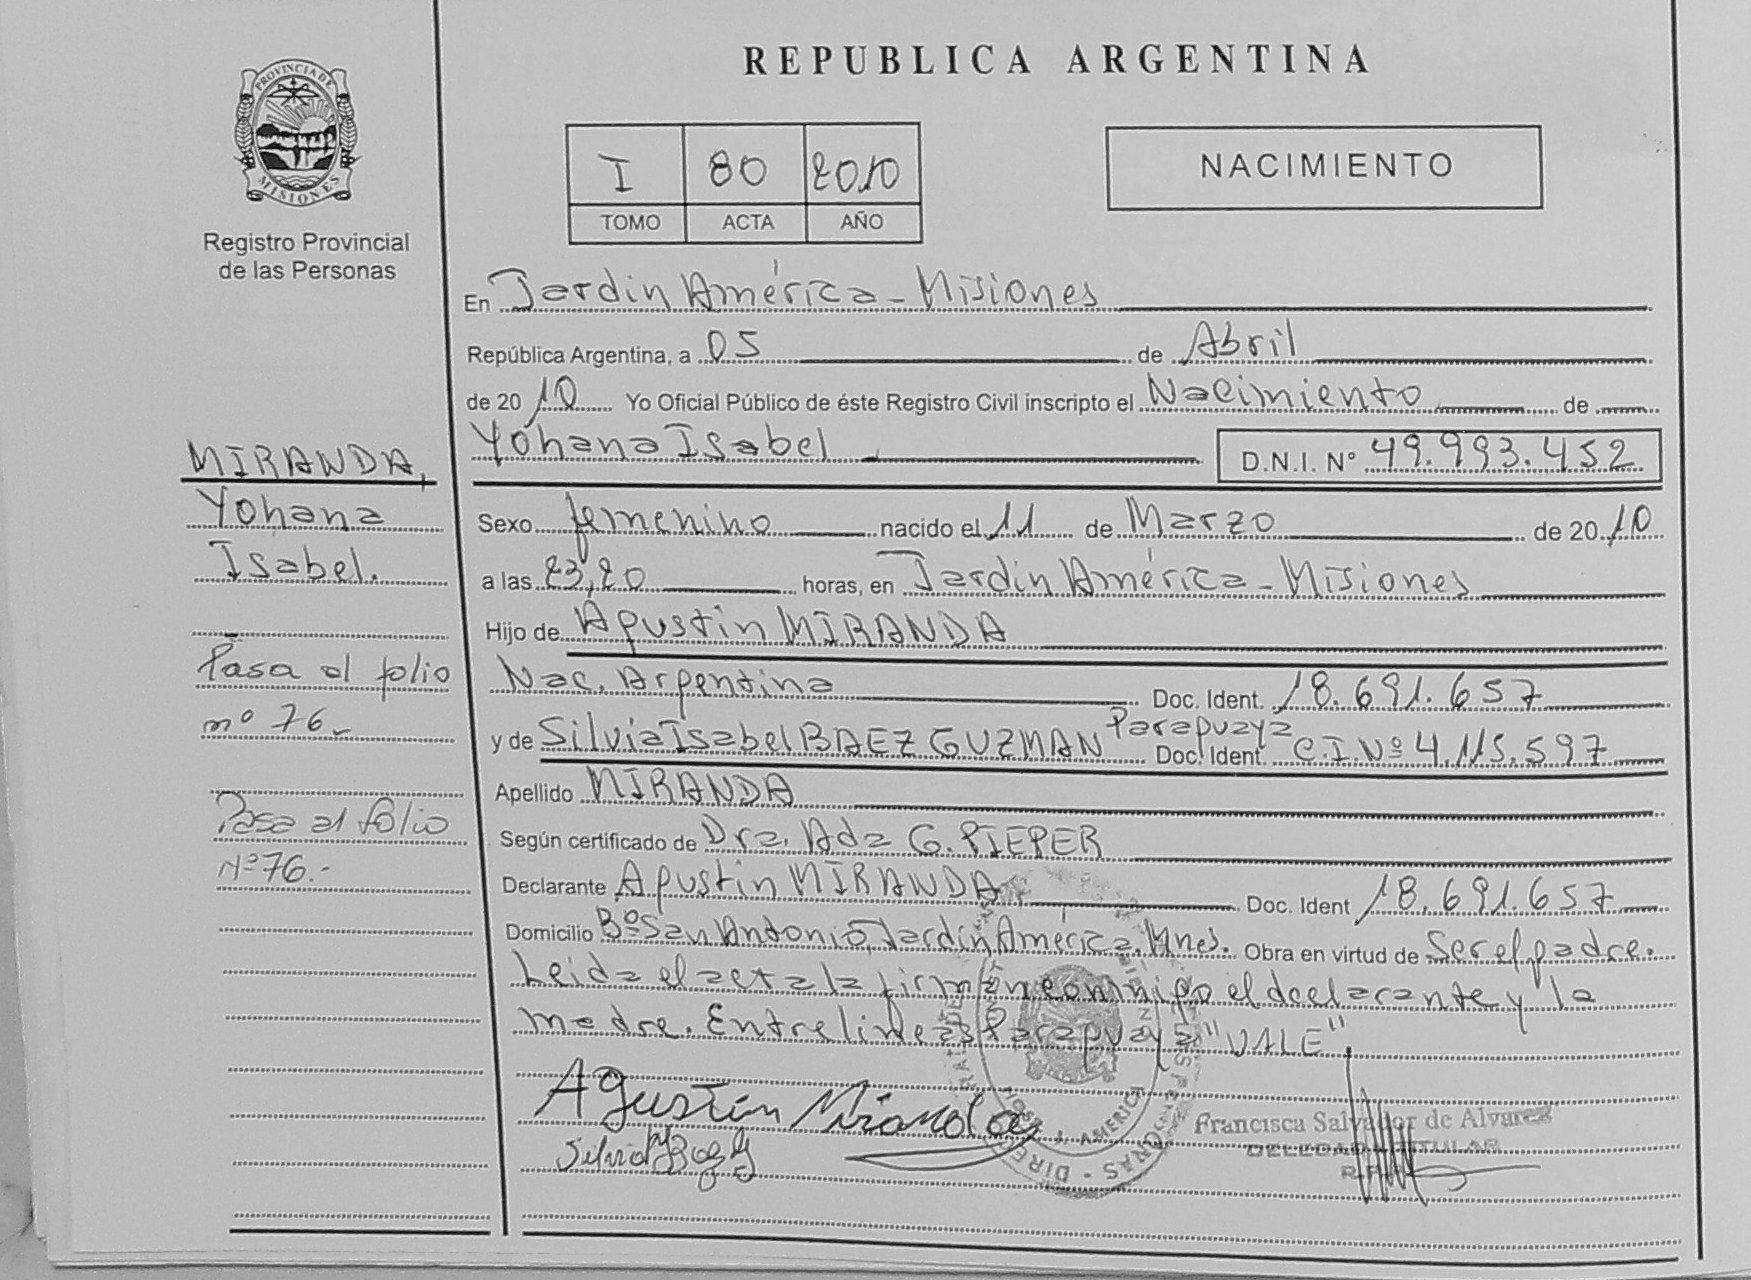 REPUBLICA ARGENTINA
PROVINCIA DE
MISIONES
Registro Provincial
de las Personas
I 80 2010
TOMO ACTA AÑO
NACIMIENTO
En Jardín América - Misiones
República Argentina, a 05 de Abril
de 2010 Yo Oficial Público de éste Registro Civil inscripto el Nacimiento de
Yohana Isabel D.N.I. Nº 49.993.452
MIRANDA,
Yohana
Isabel.
Sexo femenino nacido el 11 de Marzo de 2010
a las 23,20 horas, en Jardín América - Misiones
Hijo de Agustin MIRANDA
Nac. Argentina Doc. Ident. 18.691.657
Paraguaya
y de Silvia Isabel BAEZ GUZMAN Doc. Ident. C.I.Nº 4.115.597
Pasa al folio
nº 76-
Apellido MIRANDA
Según certificado de Dra. Ada G. PIEPER
Pasa al folio
Nº 76.-
Declarante Agustin MIRANDA Doc. Ident 18.691.657
Domicilio Bº San Antonio, Jardín América. Mnes. Obra en virtud de Ser el padre.
Leida el acta la firman conmigo el declarante y la
madre. Entrelineas Paraguaya "VALE".
Agustin Miranda
Francisca Salvador de Alvarez
DELEGADA TITULAR